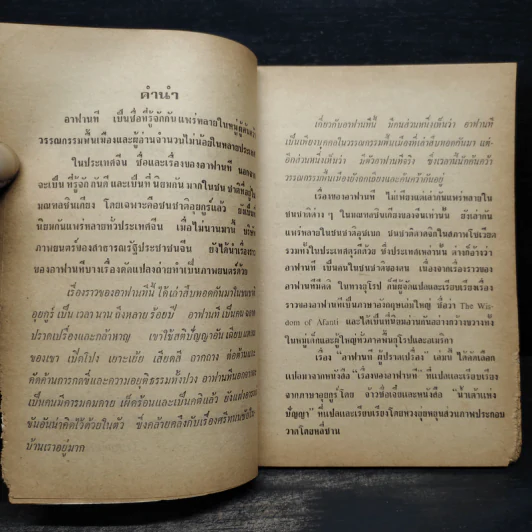 คำนำ
อาฟานที เป็นชื่อที่รู้จักกันแพร่หลายในหมู่ผู้ค้นคว้า
วรรณกรรมพื้นเมืองและผู้อ่านจำนวนไม่น้อยในหลายประเทศ
ในประเทศจีน ชื่อและเรื่องของอาฟานที นอกจาก
จะเป็นที่รู้จักกันดี และเป็นที่นิยมกันมากในชนชาติที่อยู่ใน
มณฑลซินเกียง โดยเฉพาะคือชนชาติอุยกูร์แล้ว ยังเป็นที่
นิยมกันแพร่หลายทั่วประเทศจีน เมื่อไม่นานมานี้ บริษัท
ภาพยนตร์ของสาธารณรัฐประชาชนจีน ยังได้นำเรื่องราว
ของอาฟานทีบางเรื่องดัดแปลงถ่ายทำเป็นภาพยนตร์ด้วย
เรื่องราวของอาฟานทีนี้ ได้เล่าสืบทอดกันมาในชนชาติ
อุยกูร์ เป็นเวลานานถึงหลายร้อยปี อาฟานที เป็นคน
ปราดเปรื่องและกล้าหาญ เขาใช้สติปัญญาอันเฉียบแหลม
ของเขา เปิดโปง เยาะเย้ย เสียดสี ถากถาง ต่อต้านและ
คัดค้านการกดขี่และความอยุติธรรมทั้งปวง อาฟานทีนอกจาก
เป็นคนมีคารมคมคาย เผ็ดร้อนและเป็นคติแล้ว ยังแฝงความ
ขันอันน่าคิดไว้ด้วยในตัว ซึ่งคล้ายคลึงกับเรื่องศรีธนญชัยใน
บ้านเราอยู่มาก
เกี่ยวกับอาฟานทีนี้ มีคนส่วนหนึ่งเห็นว่า อาฟานที
เป็นเพียงบุคคลในวรรณกรรมพื้นเมืองที่เล่าสืบทอดกันมา แต่
อีกส่วนหนึ่งเห็นว่า มีตัวอาฟานทีจริง ซึ่งเวลานี้นักค้นคว้า
วรรณกรรมพื้นเมืองยังถกเถียงและค้นคว้ากันอยู่
เรื่องของอาฟานที ไม่เพียงแต่เล่ากันแพร่หลายใน
ชนชาติต่าง ๆ ในมณฑลซินเกียงของจีนเท่านั้น ยังเล่ากัน
แพร่หลายในชนชาติอุซเบก ชนชาติตาจิคในสหภาพโซเวียต
รวมทั้งในประเทศตุรกีด้วย ซึ่งประเทศเหล่านั้น ต่างก็อ้างว่า
อาฟานที เป็นคนในชนชาติของตน เนื่องจากเรื่องราวของ
อาฟานทีมีคติ ในทางยุโรป ก็มีผู้ค้นแปลและเรียบเรียงเรื่อง
ราวของอาฟานทีเป็นภาษาอังกฤษเล่มใหญ่ ชื่อว่า The Wis-
dom of Afanti และได้เป็นที่นิยมอ่านกันอย่างกว้างขวางทั้ง
ในหมู่เด็กและผู้ใหญ่ทั้งภาคพื้นยุโรปและอเมริกา
เรื่อง "อาฟานที ผู้ปราดเปรื่อง" เล่มนี้ ได้คัดเลือก
แปลมาจากหนังสือ "เรื่องของอาฟานที" ที่แปลและเรียบเรียง
จากภาษาอุยกูร์โดย จ้าวซื่อเจี๋ยและหนังสือ "น้ำเต้าแห่ง
ปัญญา" ที่แปลและเรียบเรียงโดยหวางอุ่ยหยุนส่วนภาพประกอบ
วาดโดยหลี่ซาน